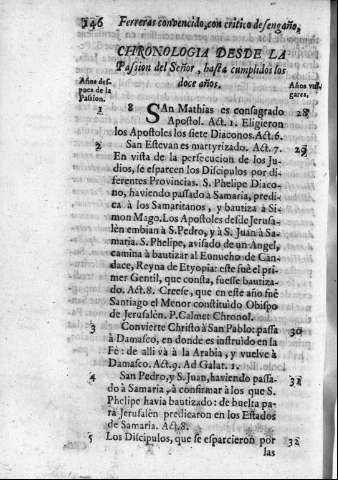 146 Ferreras convencido, con critico desengaño,
CHRONOLOGIA DESDE LA
Passion del Señor, hasta cumplidos los
doce años.
Años des-
pues de la
Passion.
Años vul-
gares.
1 8 SAn Mathias es consagrado 28
Apostol. Act. 1. Eligieron
los Apostoles los siete Diaconos. Act. 6.
2 San Estevan es martyrizado. Act. 7. 29
En vista de la persecucion de los Ju-
dios, se esparcen los Discipulos por di-
ferentes Provincias. S. Phelipe Diaco-
no, haviendo passado à Samaria, predi-
ca à los Samaritanos, y bautiza à Si-
mon Mago. Los Apostoles desde Jerusa-
lèn embian à S. Pedro, y à S. Juan à Sa-
maria. S. Phelipe, avisado de un Angel,
camina à bautizar al Eunucho de Can-
dace, Reyna de Etyopia: este fuè el pri-
mer Gentil, que consta, fuesse bautiza-
do. Act. 8. Creese, que en este año fuè
Santiago el Menor constituìdo Obispo
de Jerusalèn. P. Calmet Chronol.
3 Convierte Christo à San Pablo: passa 30
à Damasco, en donde es instruìdo en la
Fè: de allì và à la Arabia, y vuelve à
Damasco. Act. 9. Ad Galat. 1.
4 San Pedro, y S. Juan, haviendo passa- 31
do à Samaria, à confirmar à los que S.
Phelipe havia bautizado: de buelta pa-
rà Jerusalèn predicaron en los Estados
de Samaria. Act. 8.
5 Los Discipulos, que se esparcieron por 32
las